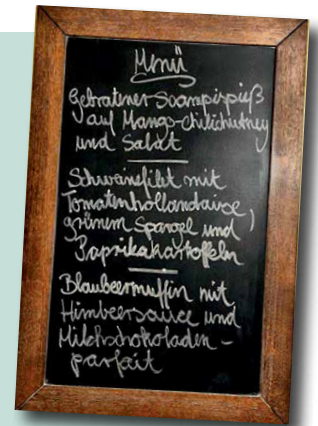 Menü
Gebratener Scampispieß
auf Mango-Chilichutney
und Salat
Schweinefilet mit
Tomatenhollandaise,
grünem Spargel und
Paprikakartoffeln
Blaubeermuffin mit
Himbeersauce und
Milchschokoladen-
parfait